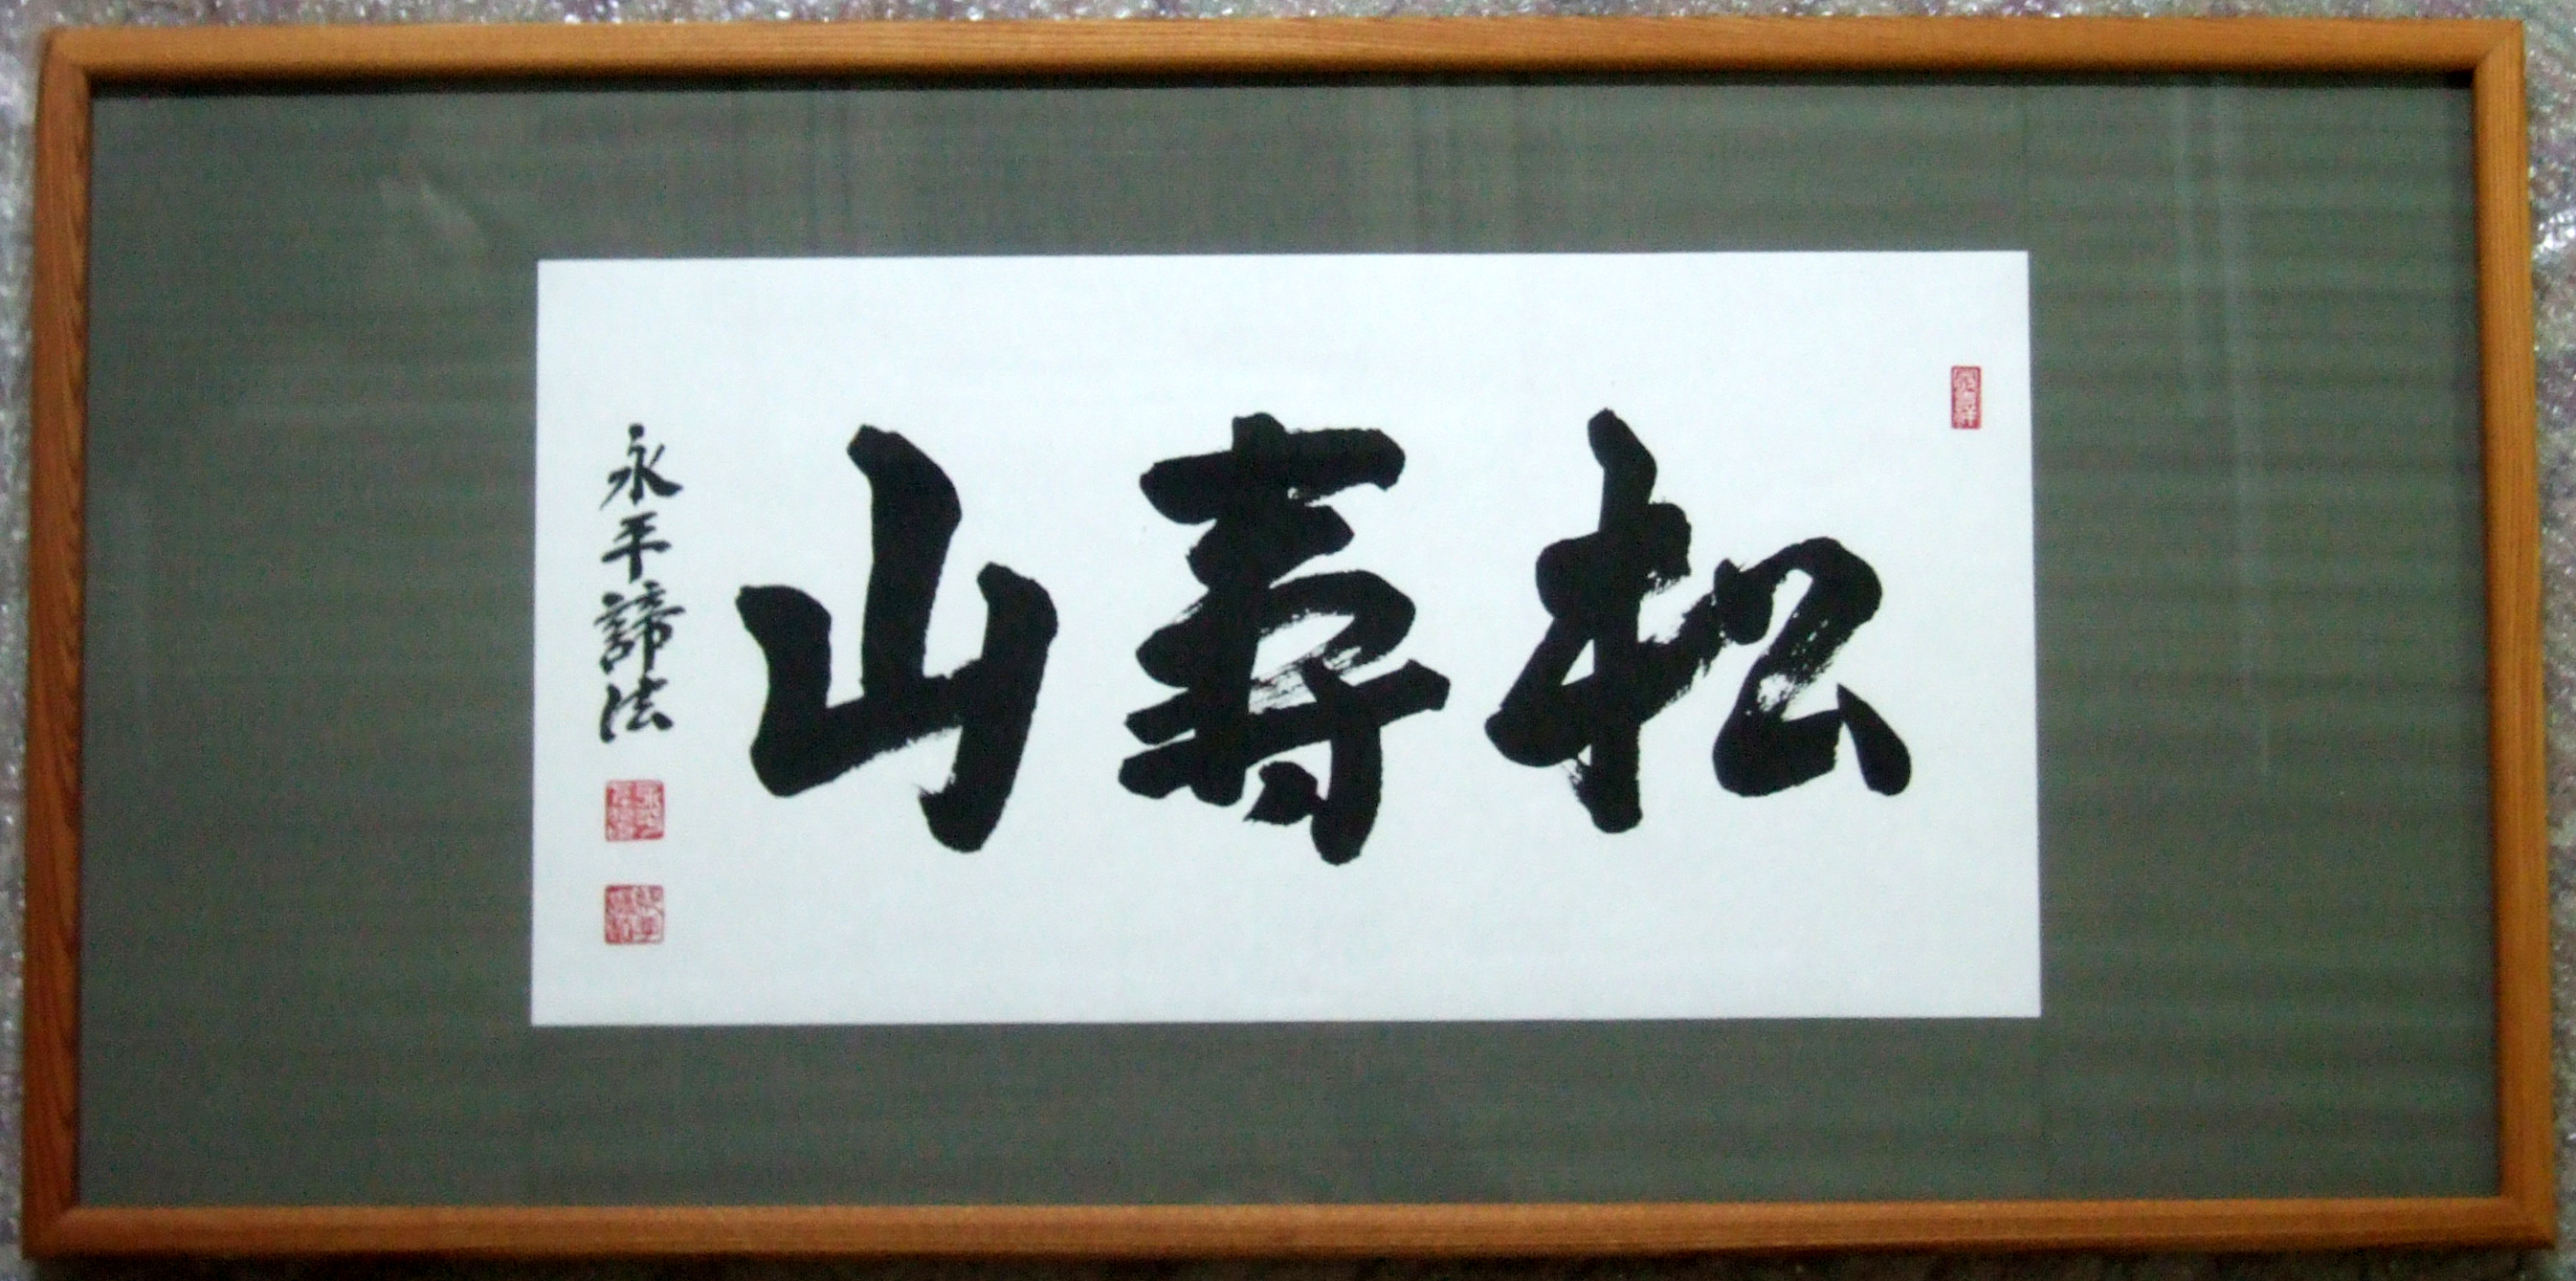 松壽山
永平諦法